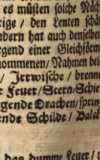 es müsten solche Näch
tige / den Lenten schä
ndern hat auch denselben
rgend einer Gleichförm
nommenen / Nahmen beleg
/ Irrwische / brenne
e Feuer / Stern-Schie
gende Drachen / sprin
ende Schilde / Balck
das dumme Feuer /